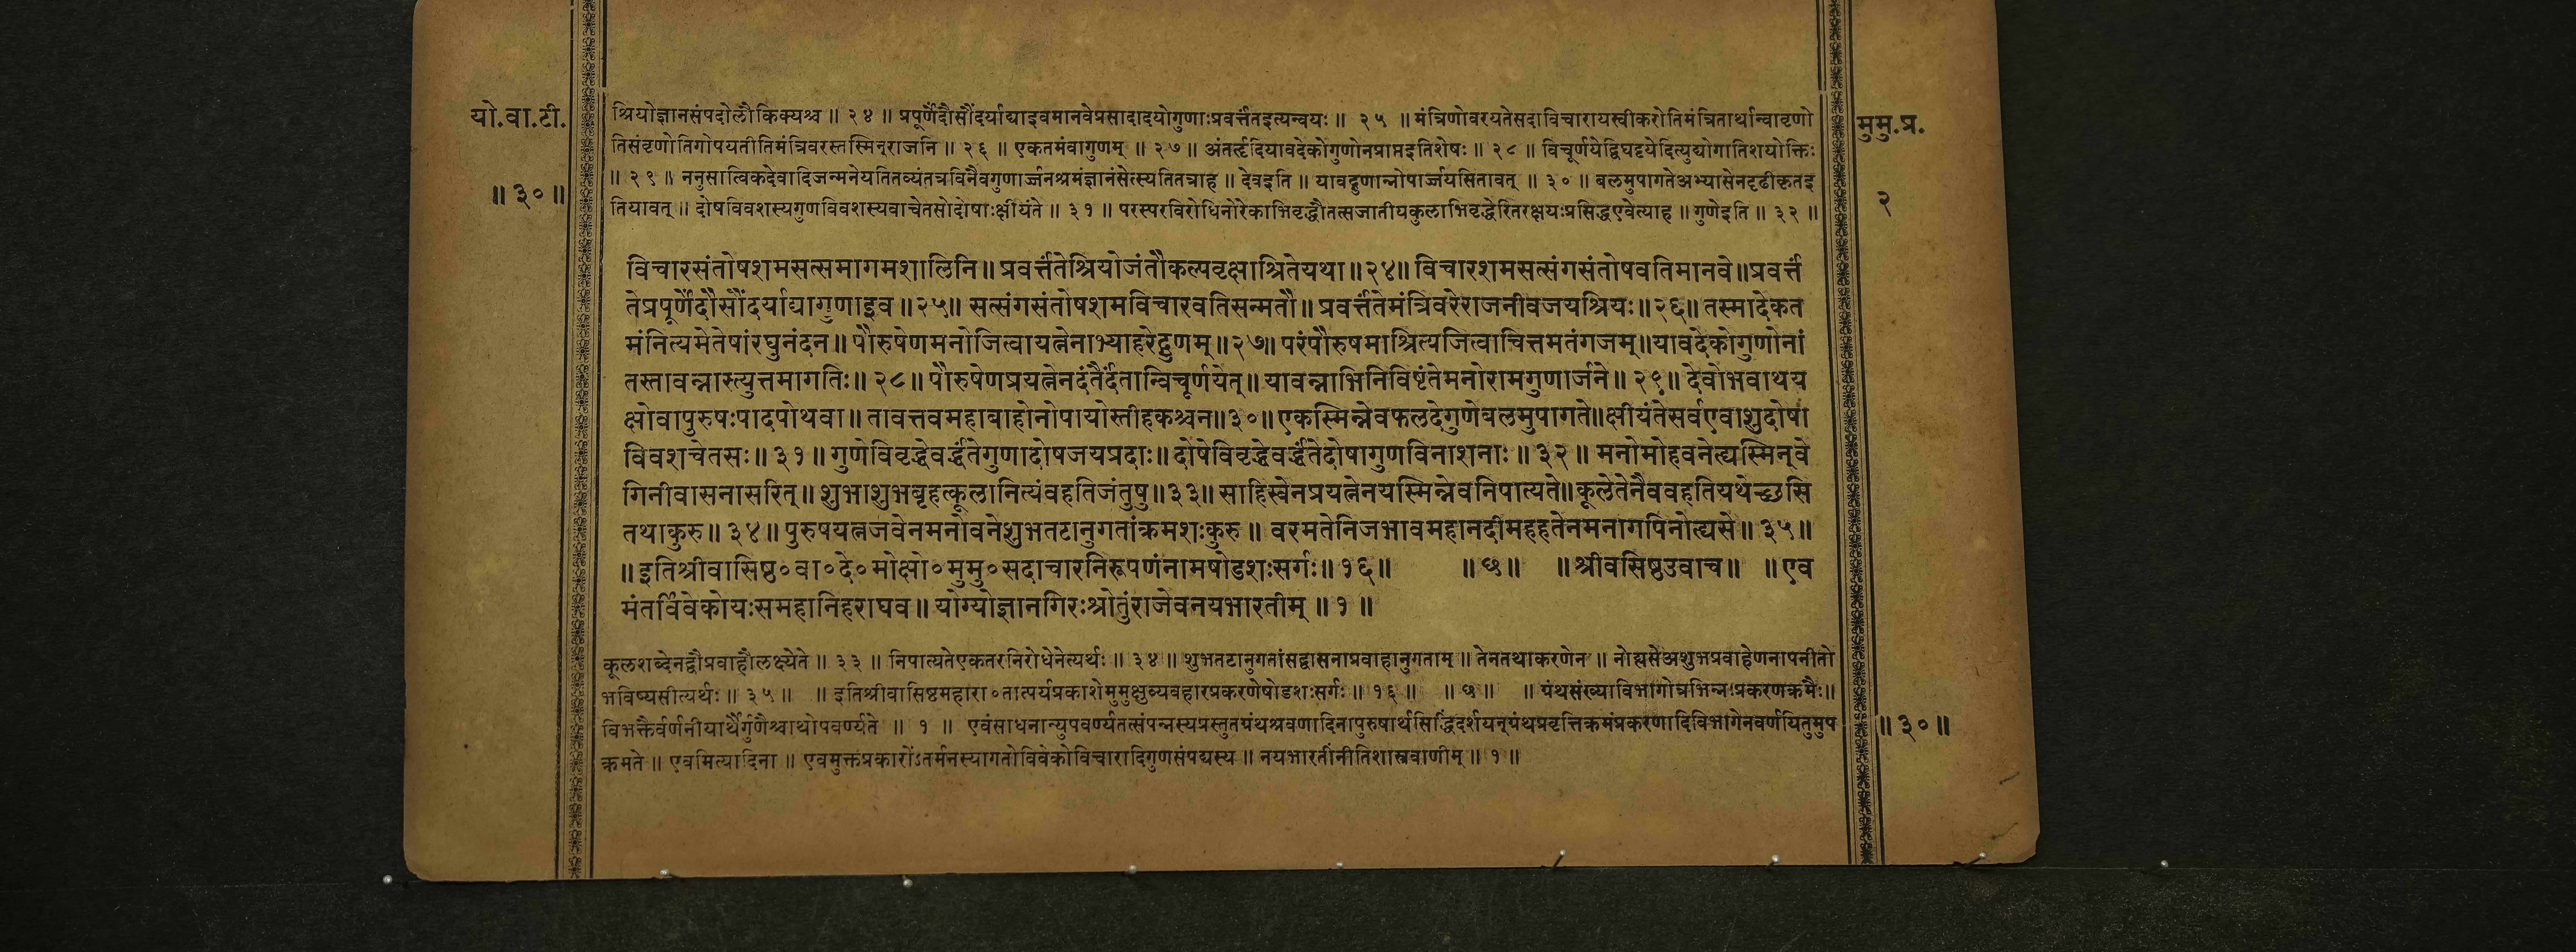 यो.वा.टी.
॥ ३० ॥
श्रियोज्ञानसंपदोलौकिक्यश्च ॥ २४ ॥ प्रपूर्णेंदौसौंदर्याद्याइवमानवेप्रसादादयोगुणाःप्रवर्त्तंतइत्यन्वयः ॥ २५ ॥ मंत्रिणोवरयतेसदाविचारायस्वीकरोतिमंत्रितार्थान्वावृणो
तिसंवृणोतिगोपयतीतिमंत्रिवरस्तस्मिन्राजनि ॥ २६ ॥ एकतमंवागुणम् ॥ २७ ॥ अंतर्हृदियावदेकोगुणोनप्राप्तइतिशेषः ॥ २८ ॥ विचूर्णयेद्विघट्टयेदित्युद्योगातिशयोक्तिः
॥ २९ ॥ ननुसात्विकदेवादिजन्मनेयतितव्यंतत्रविनैवगुणार्ज्जनश्रमंज्ञानंसेत्स्यतितत्राह ॥ देवइति ॥ यावद्गुणान्नोपार्ज्जयसितावत् ॥ ३० ॥ बलमुपागतेअभ्यासेनदृढीकृतइ
तियावत् ॥ दोषविवशस्यगुणविवशस्यवाचेतसोदोषाःक्षीयंते ॥ ३१ ॥ परस्परविरोधिनोरेकाभिवृद्धौतत्सजातीयकुलाभिवृद्धेरितरक्षयःप्रसिद्धएवेत्याह ॥ गुणेइति ॥ ३२ ॥
मुमु.प्र.
२
विचारसंतोषशमसत्समागमशालिनि ॥ प्रवर्त्तंतेश्रियोजंतौकल्पवृक्षाश्रितेयथा ॥ २४ ॥ विचारशमसत्संगसंतोषवतिमानवे ॥ प्रवर्त्तं
तेप्रपूर्णेंदौसौंदर्याद्यागुणाइव ॥ २५ ॥ सत्संगसंतोषशमविचारवतिसन्मतौ ॥ प्रवर्त्तंतेमंत्रिवरेराजनीवजयश्रियः ॥ २६ ॥ तस्मादेकत
मंनित्यमेतेषांरघुनंदन ॥ पौरुषेणमनोजित्वायत्नेनाभ्याहरेद्गुणम् ॥ २७ ॥ परंपौरुषमाश्रित्यजित्वाचित्तमतंगजम् ॥ यावदेकोगुणोनां
तस्तावन्नास्त्युत्तमागतिः ॥ २८ ॥ पौरुषेणप्रयत्नेनदंतैर्दंतान्विचूर्णयेत् ॥ यावन्नाभिनिविष्टंतेमनोरामगुणार्जने ॥ २९ ॥ देवोभवाथय
क्षोवापुरुषःपादपोथवा ॥ तावत्तवमहाबाहोनोपायोस्तीहकश्चन ॥ ३० ॥ एकस्मिन्नेवफलदेगुणेबलमुपागते ॥ क्षीयंतेसर्वएवाशुदोषा
विवशचेतसः ॥ ३१ ॥ गुणेविवृद्धेवर्द्धंतेगुणादोषजयप्रदाः ॥ दोषेविवृद्धेवर्द्धंतेदोषागुणविनाशनाः ॥ ३२ ॥ मनोमोहवनेत्द्यस्मिन्वे
गिनीवासनासरित् ॥ शुभाशुभबृहत्कूलानित्यंवहतिजंतुषु ॥ ३३ ॥ साहिस्वेनप्रयत्नेनयस्मिन्नेवनिपात्यते ॥ कूलेतेनैववहतियथेच्छसि
तथाकुरु ॥ ३४ ॥ पुरुषयत्नजवेनमनोवनेशुभतटानुगतांक्रमशःकुरु ॥ वरमतेनिजभावमहानदीमहहतेनमनागपिनोत्द्यसे ॥ ३५ ॥
॥ इतिश्रीवासिष्ठ॰वा॰दे॰मोक्षो॰मुमु॰सदाचारनिरूपणंनामषोडशःसर्गः ॥ १६ ॥ ॥ छ ॥ ॥ श्रीवसिष्ठउवाच ॥ ॥ एव
मंतर्विवेकोयःसमहानिहराघव ॥ योग्योज्ञानगिरःश्रोतुंराजेवनयभारतीम् ॥ १ ॥
कूलशब्देनद्वौप्रवाहौलक्ष्येते ॥ ३३ ॥ निपात्यतेएकतरनिरोधेनेत्यर्थः ॥ ३४ ॥ शुभतटानुगतांसद्वासनाप्रवाहानुगताम् ॥ तेनतथाकरणेन ॥ नोह्यसेअशुभप्रवाहेणनापनीतो
भविष्यसीत्यर्थः ॥ ३५ ॥ ॥ इतिश्रीवासिष्ठमहारा॰तात्पर्यप्रकाशेमुमुक्षुव्यवहारप्रकरणेषोडशःसर्गः ॥ १६ ॥ ॥ छ ॥ ॥ ग्रंथसंख्याविभागोत्रभिन्नःप्रकरणक्रमैः ॥
विभक्तैर्वर्णनीयार्थैर्गुणैश्चाथोपवर्ण्यते ॥ १ ॥ एवंसाधनान्युपवर्ण्यतत्संपन्नस्यप्रस्तुतग्रंथश्रवणादिनापुरुषार्थसिद्धिंदर्शयन्ग्रंथप्रवृत्तिक्रमंप्रकरणादिविभागेनवर्णयितुमुप
क्रमते ॥ एवमित्यादिना ॥ एवमुक्तप्रकारोंऽतर्मनस्यागतोविवेकोविचारादिगुणसंपद्यस्य ॥ नयभारतींनीतिशास्त्रवाणीम् ॥ १ ॥
॥ ३० ॥